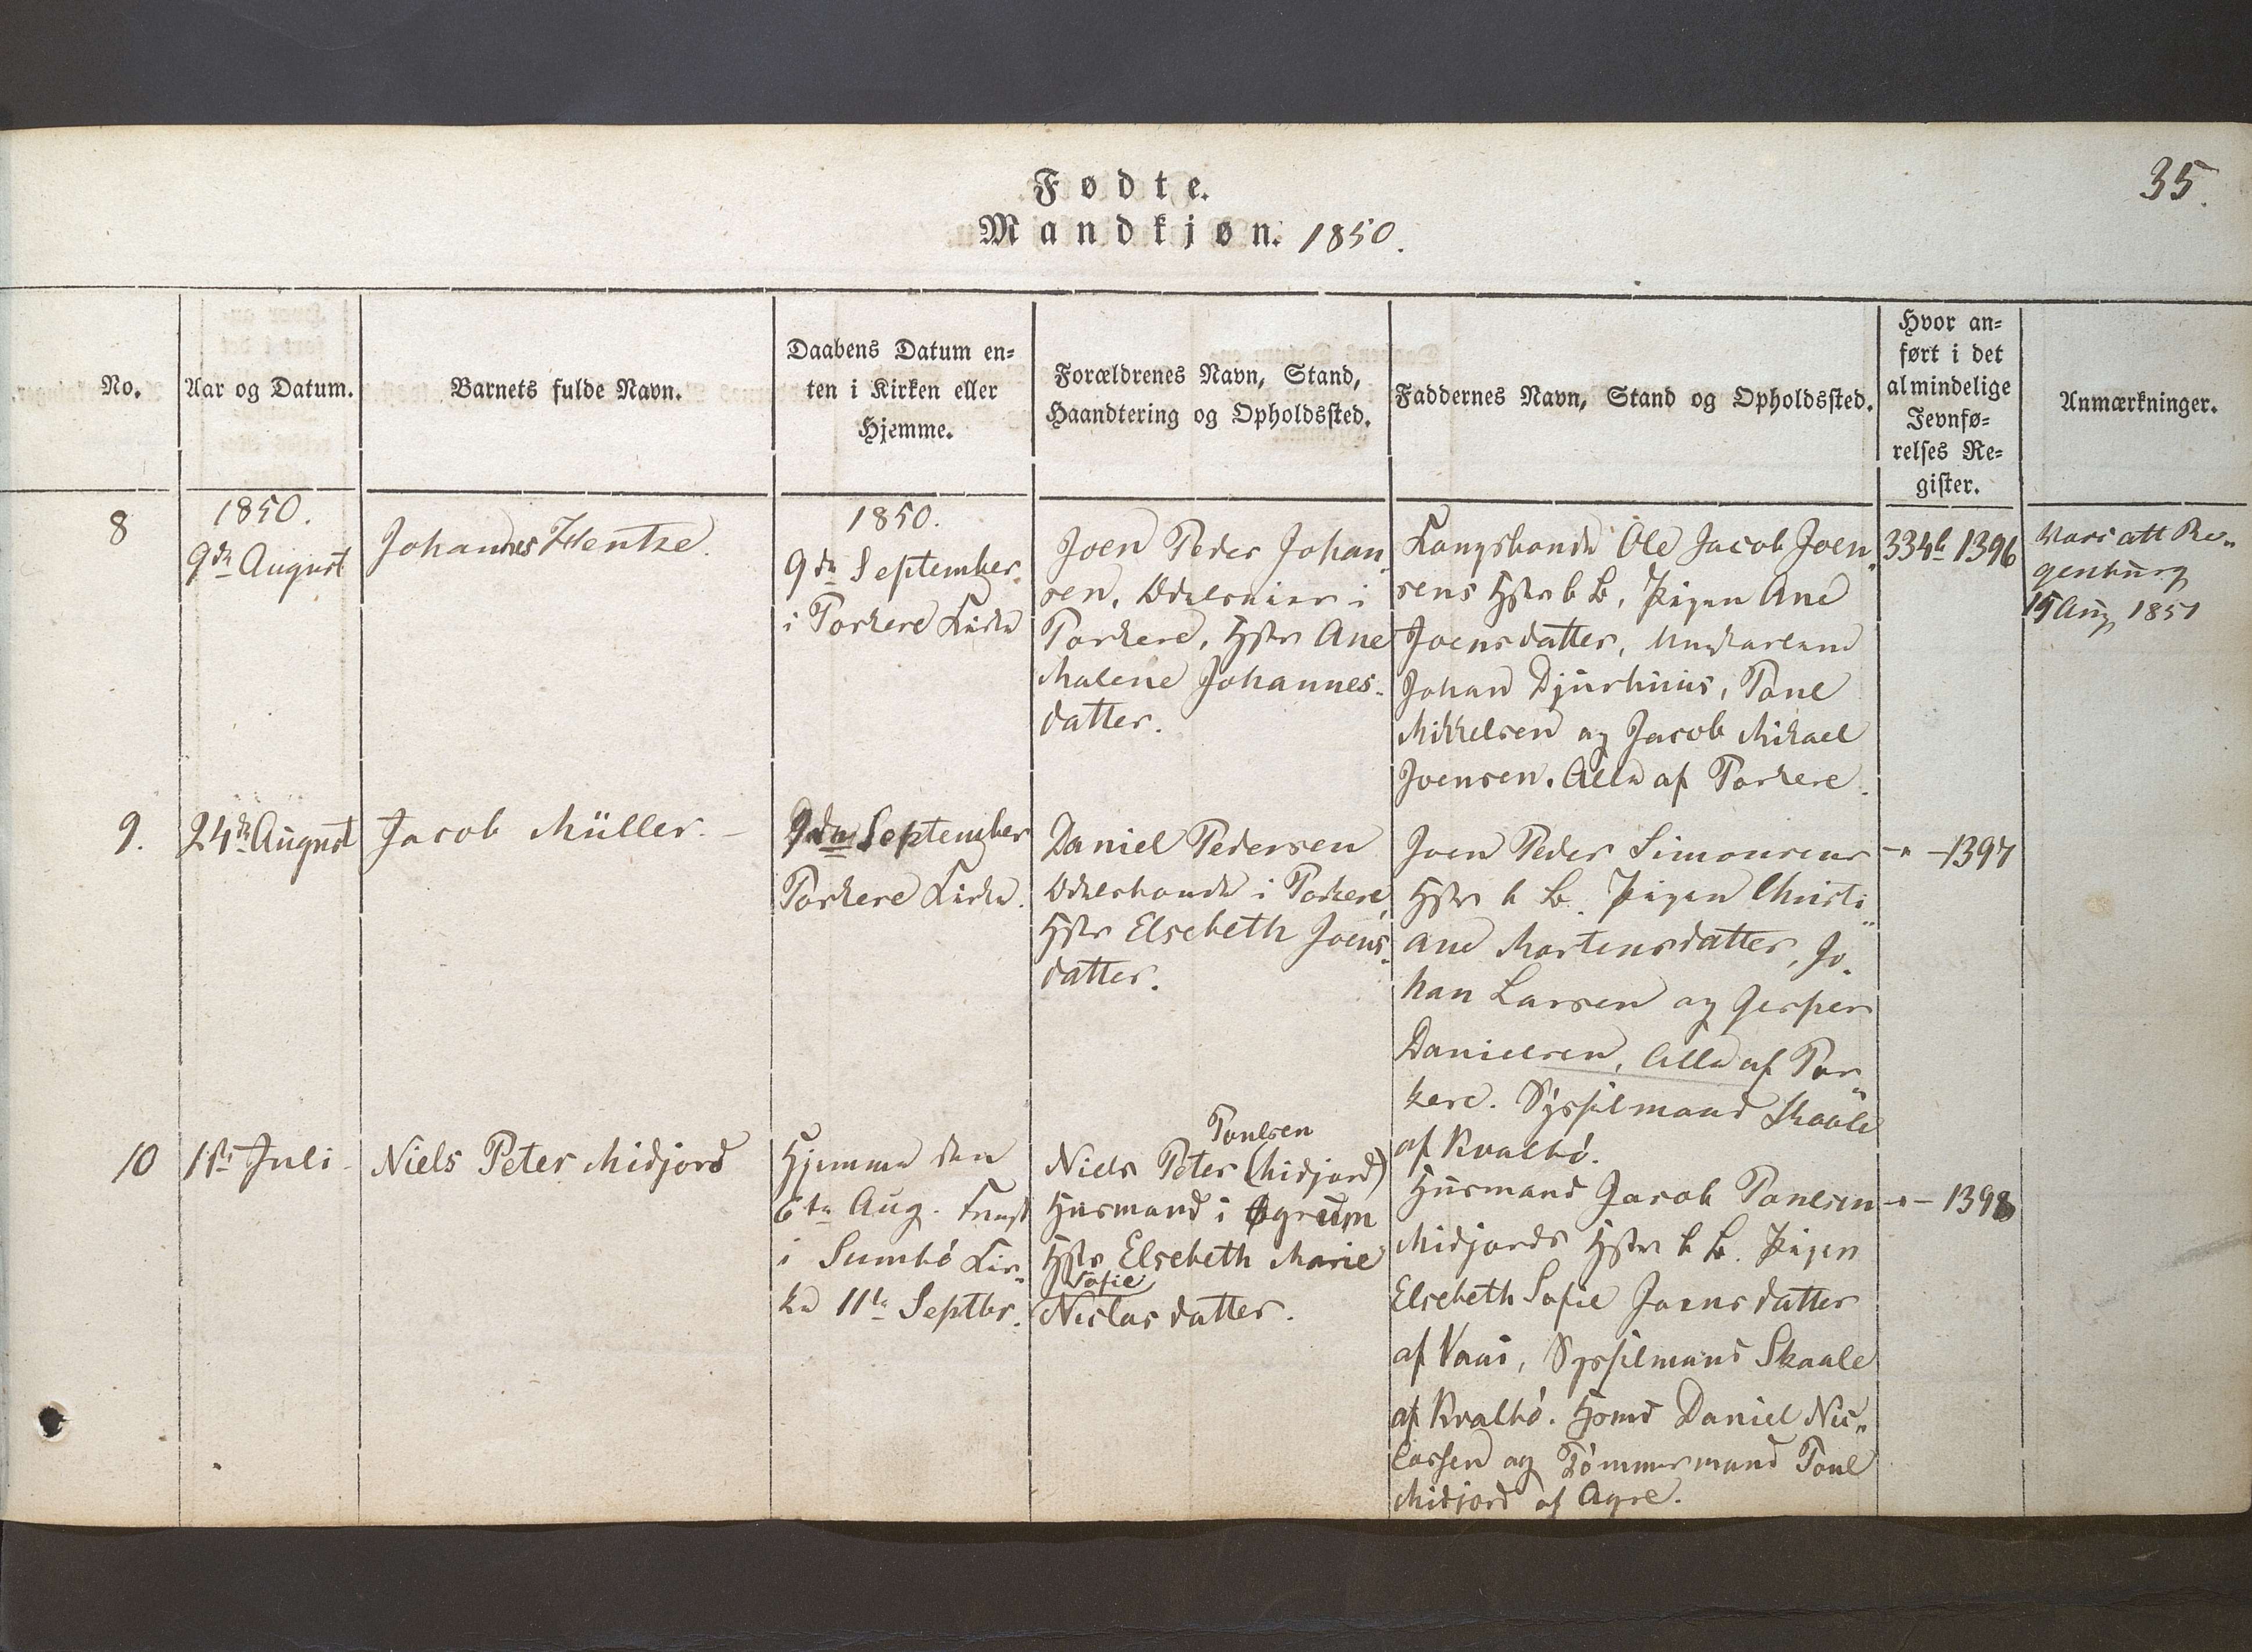 35.
Fødte.
Mandkjøn. 1850.
No.
Aar og Datum.
Barnets fulde Navn.
Daabens Datum en-
ten i Kirken eller
Hjemme.
Forældrenes Navn, Stand,
Haandtering og Opholdssted.
Faddernes Navn, Stand og Opholdssted.
Hvor an-
ført i det
almindelige
Jevnfø-
relses Re-
gister.
Anmærkninger.
8
1850.
9de August
Johannes Hentze.
1850.
9de September
i Porkere Kirke
Joen Peder Johan-
sen, i
Porkere, Hstr Ane
Malene Johannes-
datter.
Kongsbonde Ole Jacob Joen-
sens Hstr b B, Pigen Ane
Joensdatter, Ungkarlene
Johan Djurhuus, Poul
Mikkelsen og Jacob Mikael
Joensen. Alle af Porkere.
334b 1396
15 Aug 1851
9.
24de August
Jacob Müller. -
9de September
Porkere Kirke.
Daniel Pedersen
Odelsbonde i Porkere,
Hstr Elsebeth Joens-
datter.
Joen Peder Simonsens
Hstr b B. Pigen Christi-
ane Mortensdatter, Jo-
han Larsen og Jesper
Danielsen, Alle af Por-
kere. Sysselmand Skaale
af Kvalbø.
-"- 1397
10
1ste Juli
Niels Peter Midjord
Hjemme den
6te Aug. Frmst
i Sumbø Kir-
ke 11te Septbr.
Poulsen
Niels Peter (Midjord)
Husmand i Øgrum
Hstr Elsebeth Marie
Sofie
Niclasdatter.
Husmand Jacob Poulsen
Midjords Hstr b B. Pigen
Elsebeth Sofie Joensdatter
af Vaai, Sysselmand Skaale
af Kvalbø. Hsmd Daniel Nic-
lassen og Tømmermand Poul
Midjord af Agre.
-"- 1398